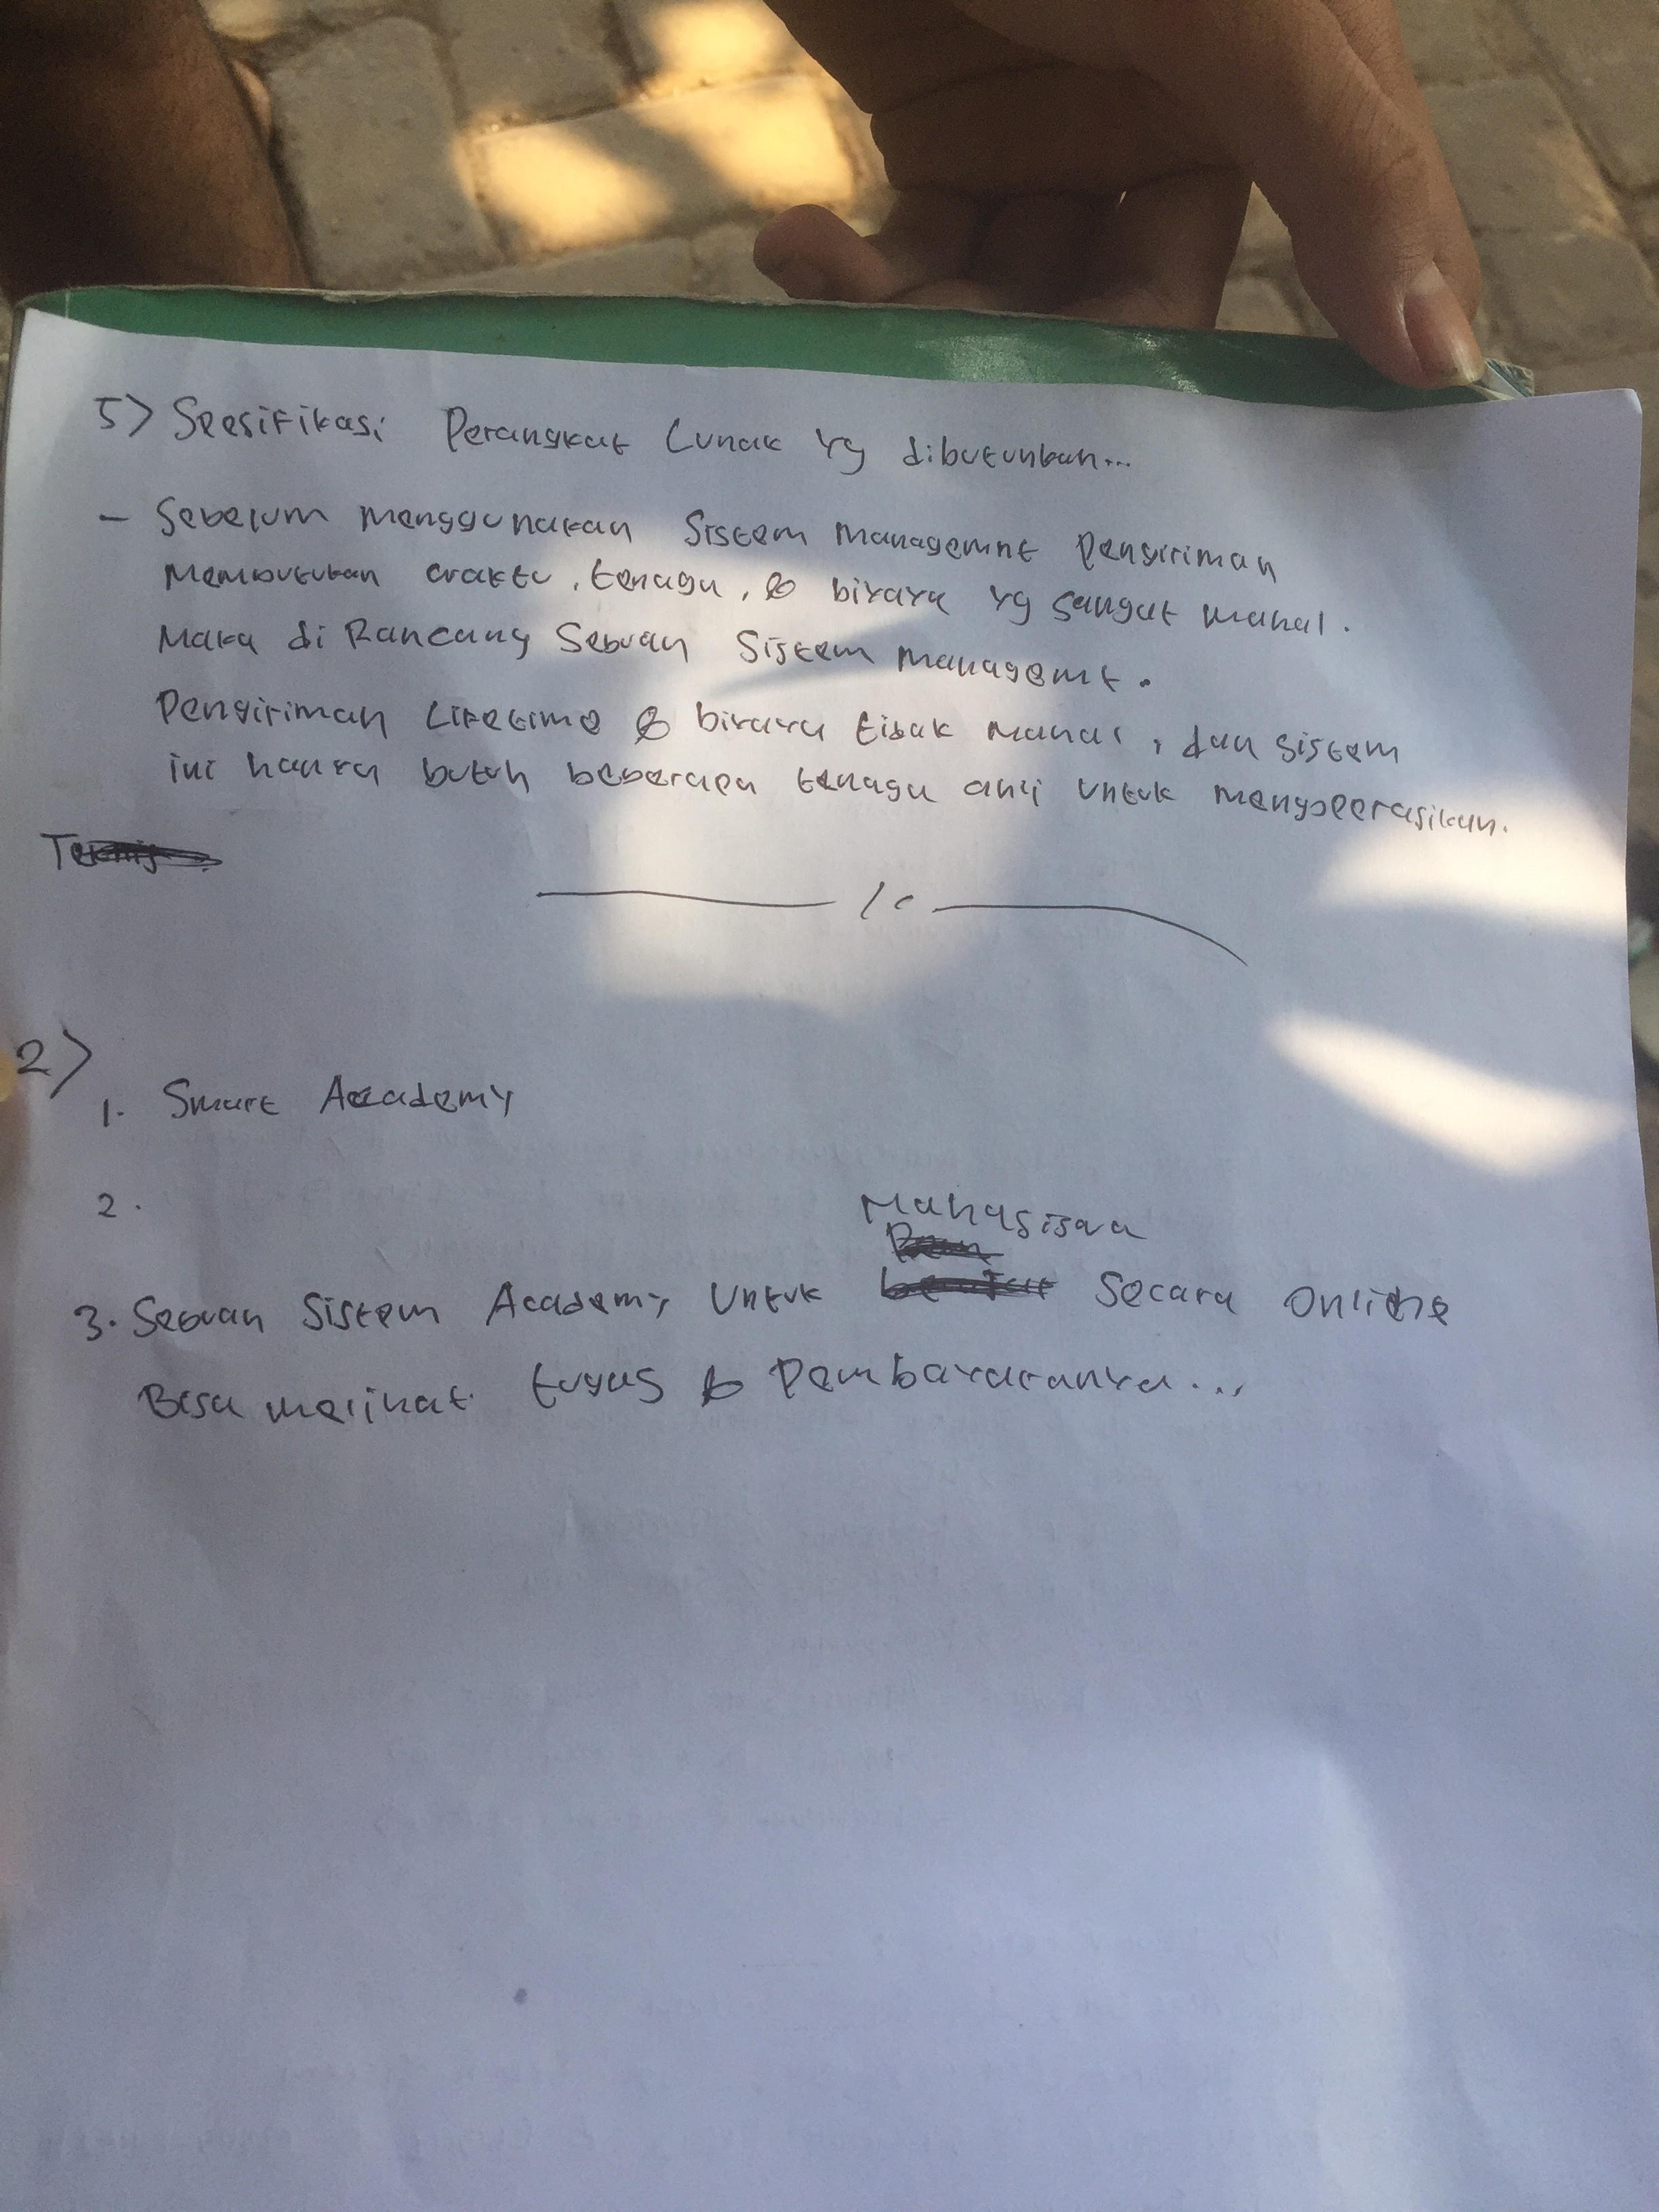 5> Spesifikasi Perangkat Lunak yg dibutuhkan...
- Sebelum menggunakan Sistem managemnt pengiriman
Membutukan waktu, tenaga, & biyaya yg sangat mahal.
Maka di Rancang Sebuah Sistem managemt.
Pengiriman Lifetime & biyaya tidak mahal, dan sistem
ini hanya butuh beberapa tenaga ahli untuk mengoperasikan.
2>
1. Smart Academy
2.
Mahasiswa
3. Sebuah Sistem Academy untuk Secara Online
Bisa melihat tugas & Pembayarannya...